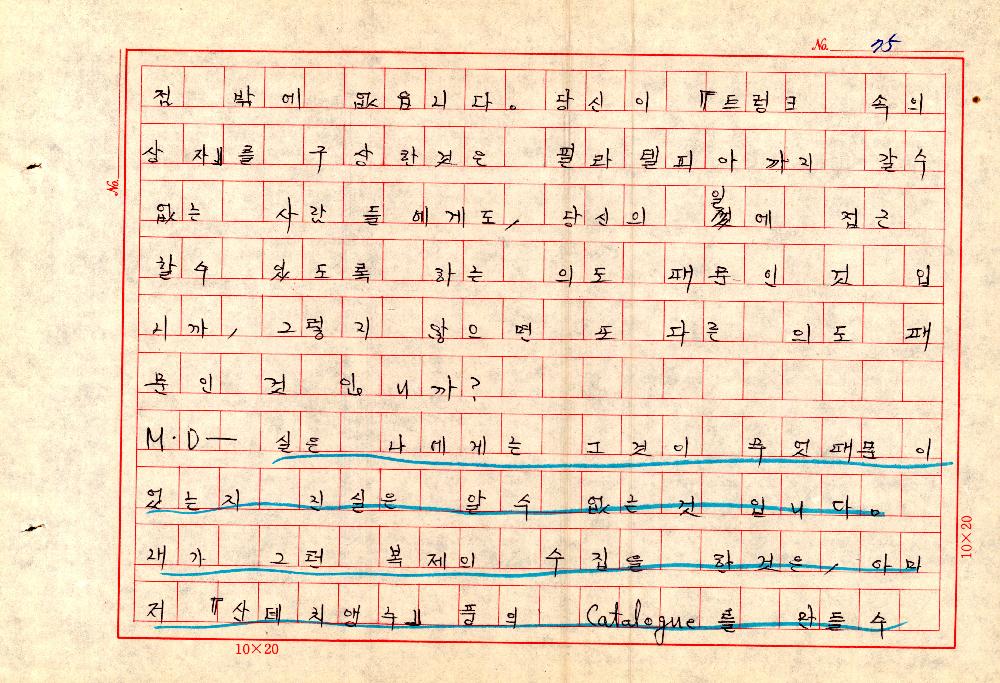 No. 75
점 밖에 없읍니다。 당신이 『트렁크 속의
상자』를 구상한것은 필라델피아까지 갈수
없는 사람들에게도, 당신의 일에 접근
할수 있도록 하는 의도 때문인 것 입
니까, 그렇지 않으면 또 다른 의도 때
문인 것 입니까?
M·D— 실은 나에게는 그것이 무엇때문이
었는지 진실은 알수 없는것 입니다。
내가 그런 복제의 수집을 한것은, 아마
저 『산테치앵누』 풍의 Catalogue를 만들수
No.
10×20
10×20